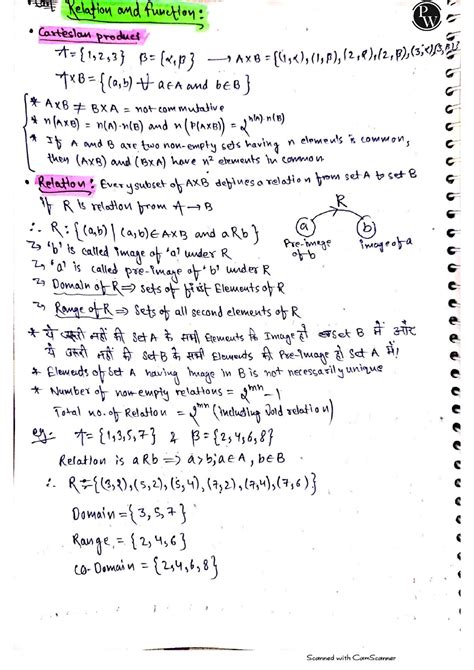 Relation and function:
PW
• Cartesian product
A={1,2,3} B={α,β} → AXB={(1,α),(1,β),(2,α),(2,β),(3,α)(3,β)}
AXB={(a,b) ∀ a∈A and b∈B}
* AXB ≠ BXA = not commutative
* n(AXB) = n(A)·n(B) and n(P(AXB)) = 2^n(A)·n(B)
* If A and B are two non-empty sets having n elements in common,
then (AXB) and (BXA) have n² elements in common
• Relation: Every subset of AXB defines a relation from set A to set B
If R is relation from A → B
R
∴ R:{(a,b)|(a,b)∈AXB and aRb}
a b
Pre-image of b
image of a
↳ 'b' is called image of 'a' under R
↳ 'a' is called pre-image of 'b' under R
↳ Domain of R ⇒ Sets of first Elements of R
↳ Range of R ⇒ Sets of all second elements of R
* ये जरूरी नहीं की Set A के सभी Elements कि Image हो Set B में और
ये जरूरी नहीं की Set B के सभी Elements की Pre-Image हो Set A में!
* Elements of Set A having image in B is not necessarily unique
* Number of non-empty relations = 2^mn - 1
Total no. of Relation = 2^mn (including void relation)
eg:- A={1,3,5,7} & B={2,4,6,8}
Relation is aRb ⇒ a>b; a∈A, b∈B
∴ R={(3,2),(5,2),(5,4),(7,2),(7,4),(7,6)}
Domain = {3,5,7}
Range = {2,4,6}
co-Domain = {2,4,6,8}
Scanned with CamScanner